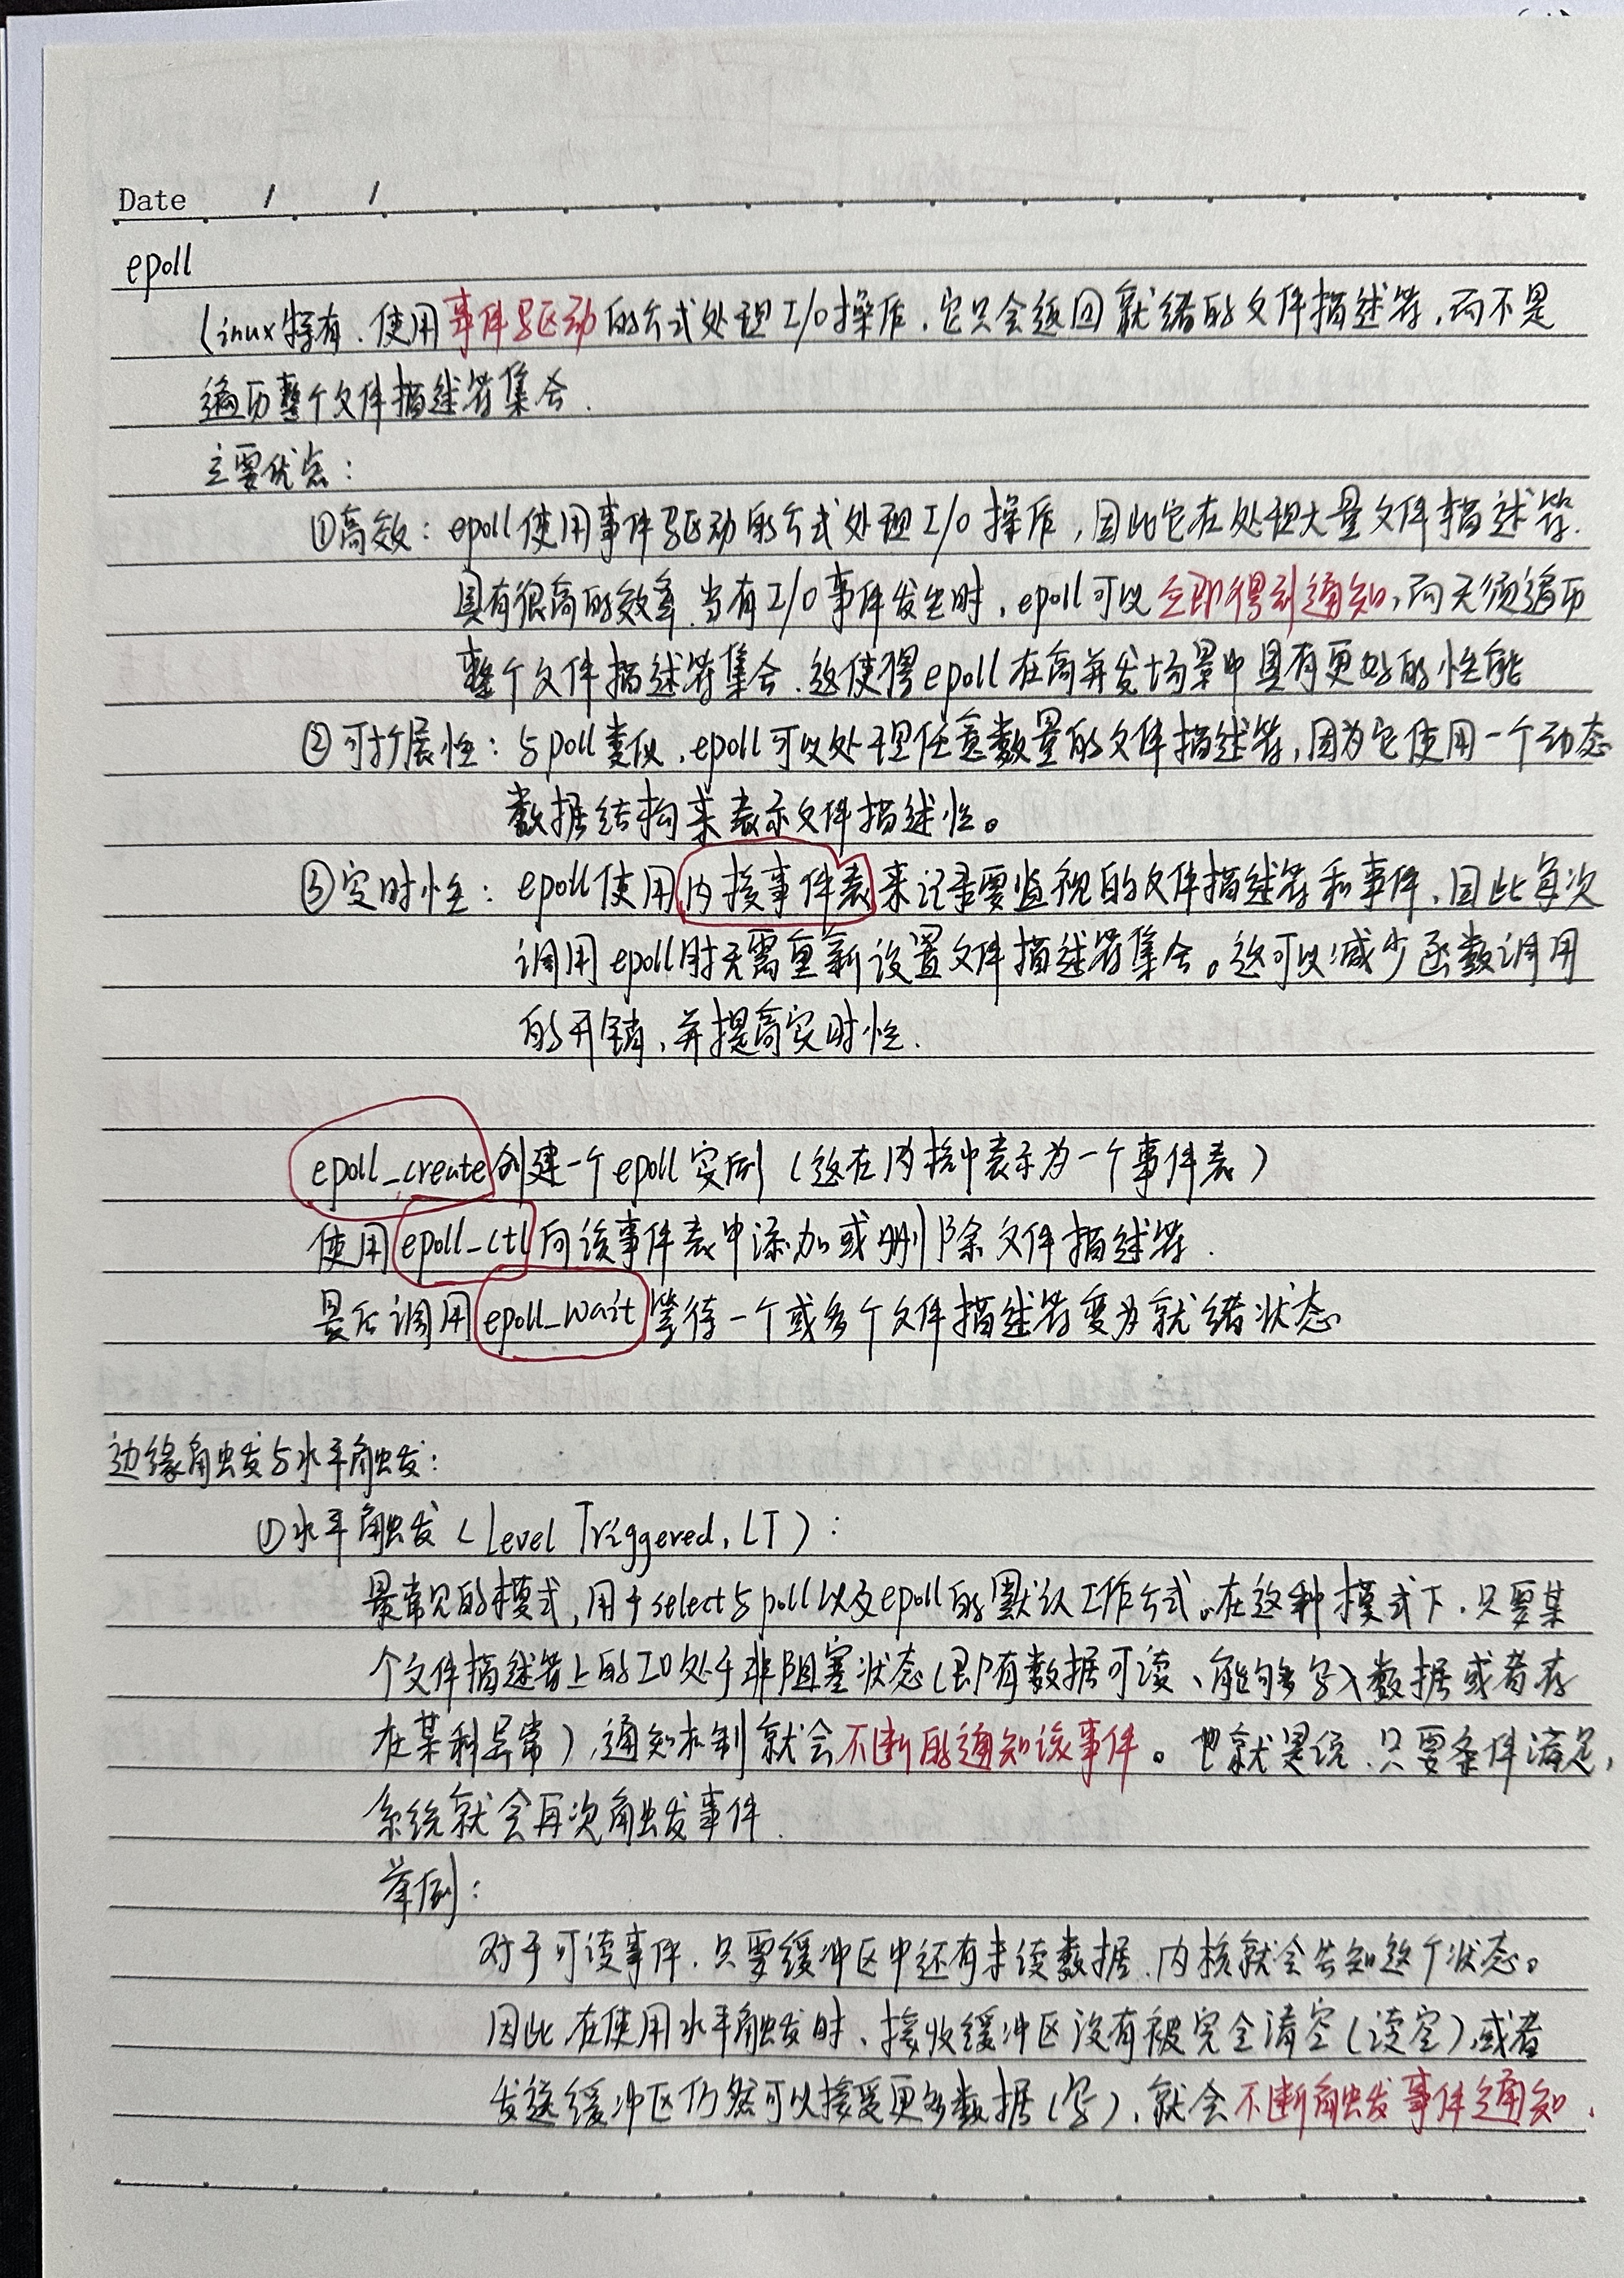 Date / /
epoll
Linux特有.使用事件驱动的方式处理I/O操作.它只会返回就绪的文件描述符,而不是
遍历整个文件描述符集合.
主要优点:
①高效:epoll使用事件驱动的方式处理I/O操作,因此它在处理大量文件描述符.
具有很高的效率.当有I/O事件发生时,epoll可以立即得到通知,而无须遍历
整个文件描述符集合.这使得epoll在高并发场景中具有更好的性能
②可扩展性:与poll类似,epoll可以处理任意数量的文件描述符,因为它使用一个动态
数据结构来表示文件描述性。
③实时性:epoll使用内核事件表来记录要监视的文件描述符和事件,因此每次
调用epoll时无需重新设置文件描述符集合。这可以减少函数调用
的开销,并提高实时性.
epoll_create创建一个epoll实例(这在内核中表示为一个事件表)
使用epoll_ctl向该事件表中添加或删除文件描述符.
最后调用epoll_wait等待一个或多个文件描述符变为就绪状态
边缘触发与水平触发:
①水平触发(Level Triggered,LT):
最常见的模式,用于select与poll以及epoll的默认工作方式。在这种模式下,只要某
个文件描述符上的IO处于非阻塞状态(即有数据可读、能够写入数据或者存
在某种异常),通知机制就会不断的通知该事件。也就是说,只要条件满足,
系统就会再次触发事件.
举例:
对于可读事件,只要缓冲区中还有未读数据,内核就会告知这个状态。
因此在使用水平触发时、接收缓冲区没有被完全清空(读空),或者
发送缓冲区仍然可以接受更多数据(写),就会不断触发事件通知.